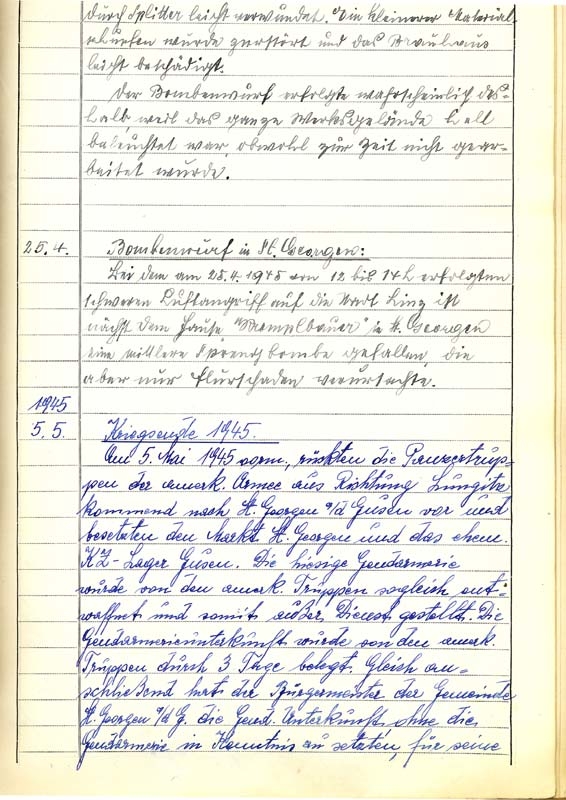 durch Splitter leicht verwundet. Ein kleinerer Material-
schuppen wurde zerstört und das Brauhaus
leicht beschädigt.
Der Bombenwurf erfolgte wahrscheinlich des-
halb, weil das ganze Werksgelände hell
beleuchtet war, obwohl zur Zeit nicht gear-
beitet wurde.
25.4. Bombenwurf in St. Georgen:
Bei dem am 25.4.1945 von 12 bis 14 h erfolgten
schweren Luftangriff auf die Stadt Linz ist
nächst dem Hause "Stempelbauer" in St. Georgen
eine mittlere Sprengbombe gefallen, die
aber nur Flurschaden verursachte.
1945
5.5. Kriegsende 1945.
Am 5. Mai 1945 vorm., rückten die Panzertrup-
pen der amerk. Armee aus Richtung Lungitz
kommend nach St. Georgen a/d Gusen vor und
besetzten den Markt St. Georgen und das ehem.
KZ-Lager Gusen. Die hiesige Gendarmerie
wurde von den amerk. Truppen sogleich ent-
waffnet und somit außer Dienst gestellt. Die
Gendarmerieunterkunft wurde von den amerk.
Truppen durch 3 Tage belegt. Gleich an-
schließend hat der Bürgermeister der Gemeinde
St. Georgen a/d G. die Gend. Unterkunft, ohne die
Gendarmerie in Kenntnis zu setzten, für seine